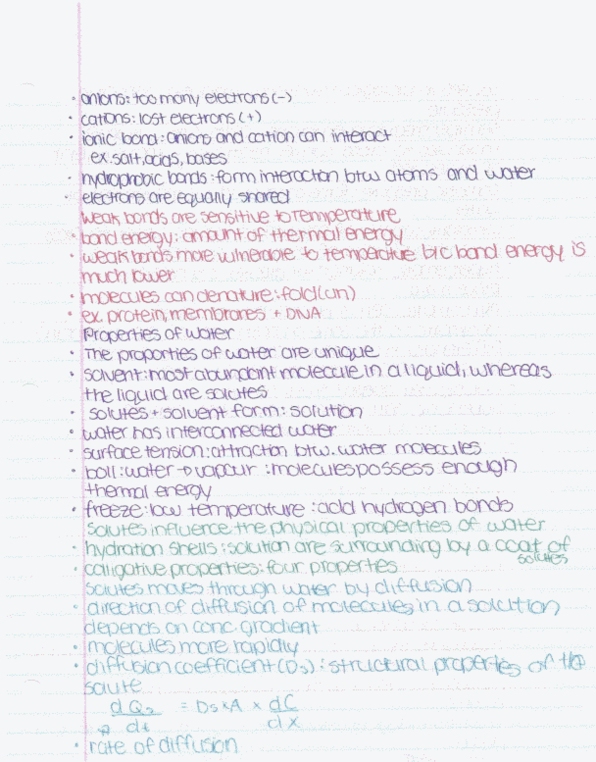 • anions: too many electrons (-)
• cations: lost electrons (+)
• ionic bond: anions and cation can interact
ex. salt, acids, bases
• hydrophobic bonds: form interaction btw atoms and water
• electrons are equally shared
weak bonds are sensitive to temperature
• bond energy: amount of thermal energy
• weak bonds more vulnerable to temperature b/c bond energy is
much lower
• molecules can denature: fold (un)
• ex. protein, membranes + DNA
Properties of water
• The properties of water are unique
• solvent: most abundant molecule in a liquid, whereas
the liquid are solutes
• solutes + solvent form: solution
• water has interconnected water
• surface tension: attraction btw. water molecules
• boil: water → vapour : molecules possess enough
thermal energy
• freeze: low temperature : add hydrogen bonds
Solutes influence the physical properties of water
• hydration shells: solution are surrounding by a coat of
solutes
• colligative properties: four properties
Solutes moves through water by diffusion
• direction of diffusion of molecules in a solution
depends on conc. gradient
• molecules more rapidly
• diffusion coefficient (Ds): structural properties of the
solute
dQs/dt = Ds x A x dC/dX
• rate of diffusion